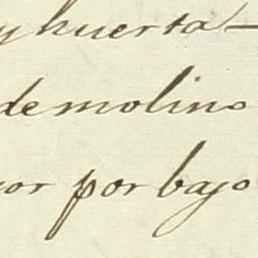 y huerta
de molino
por bajo